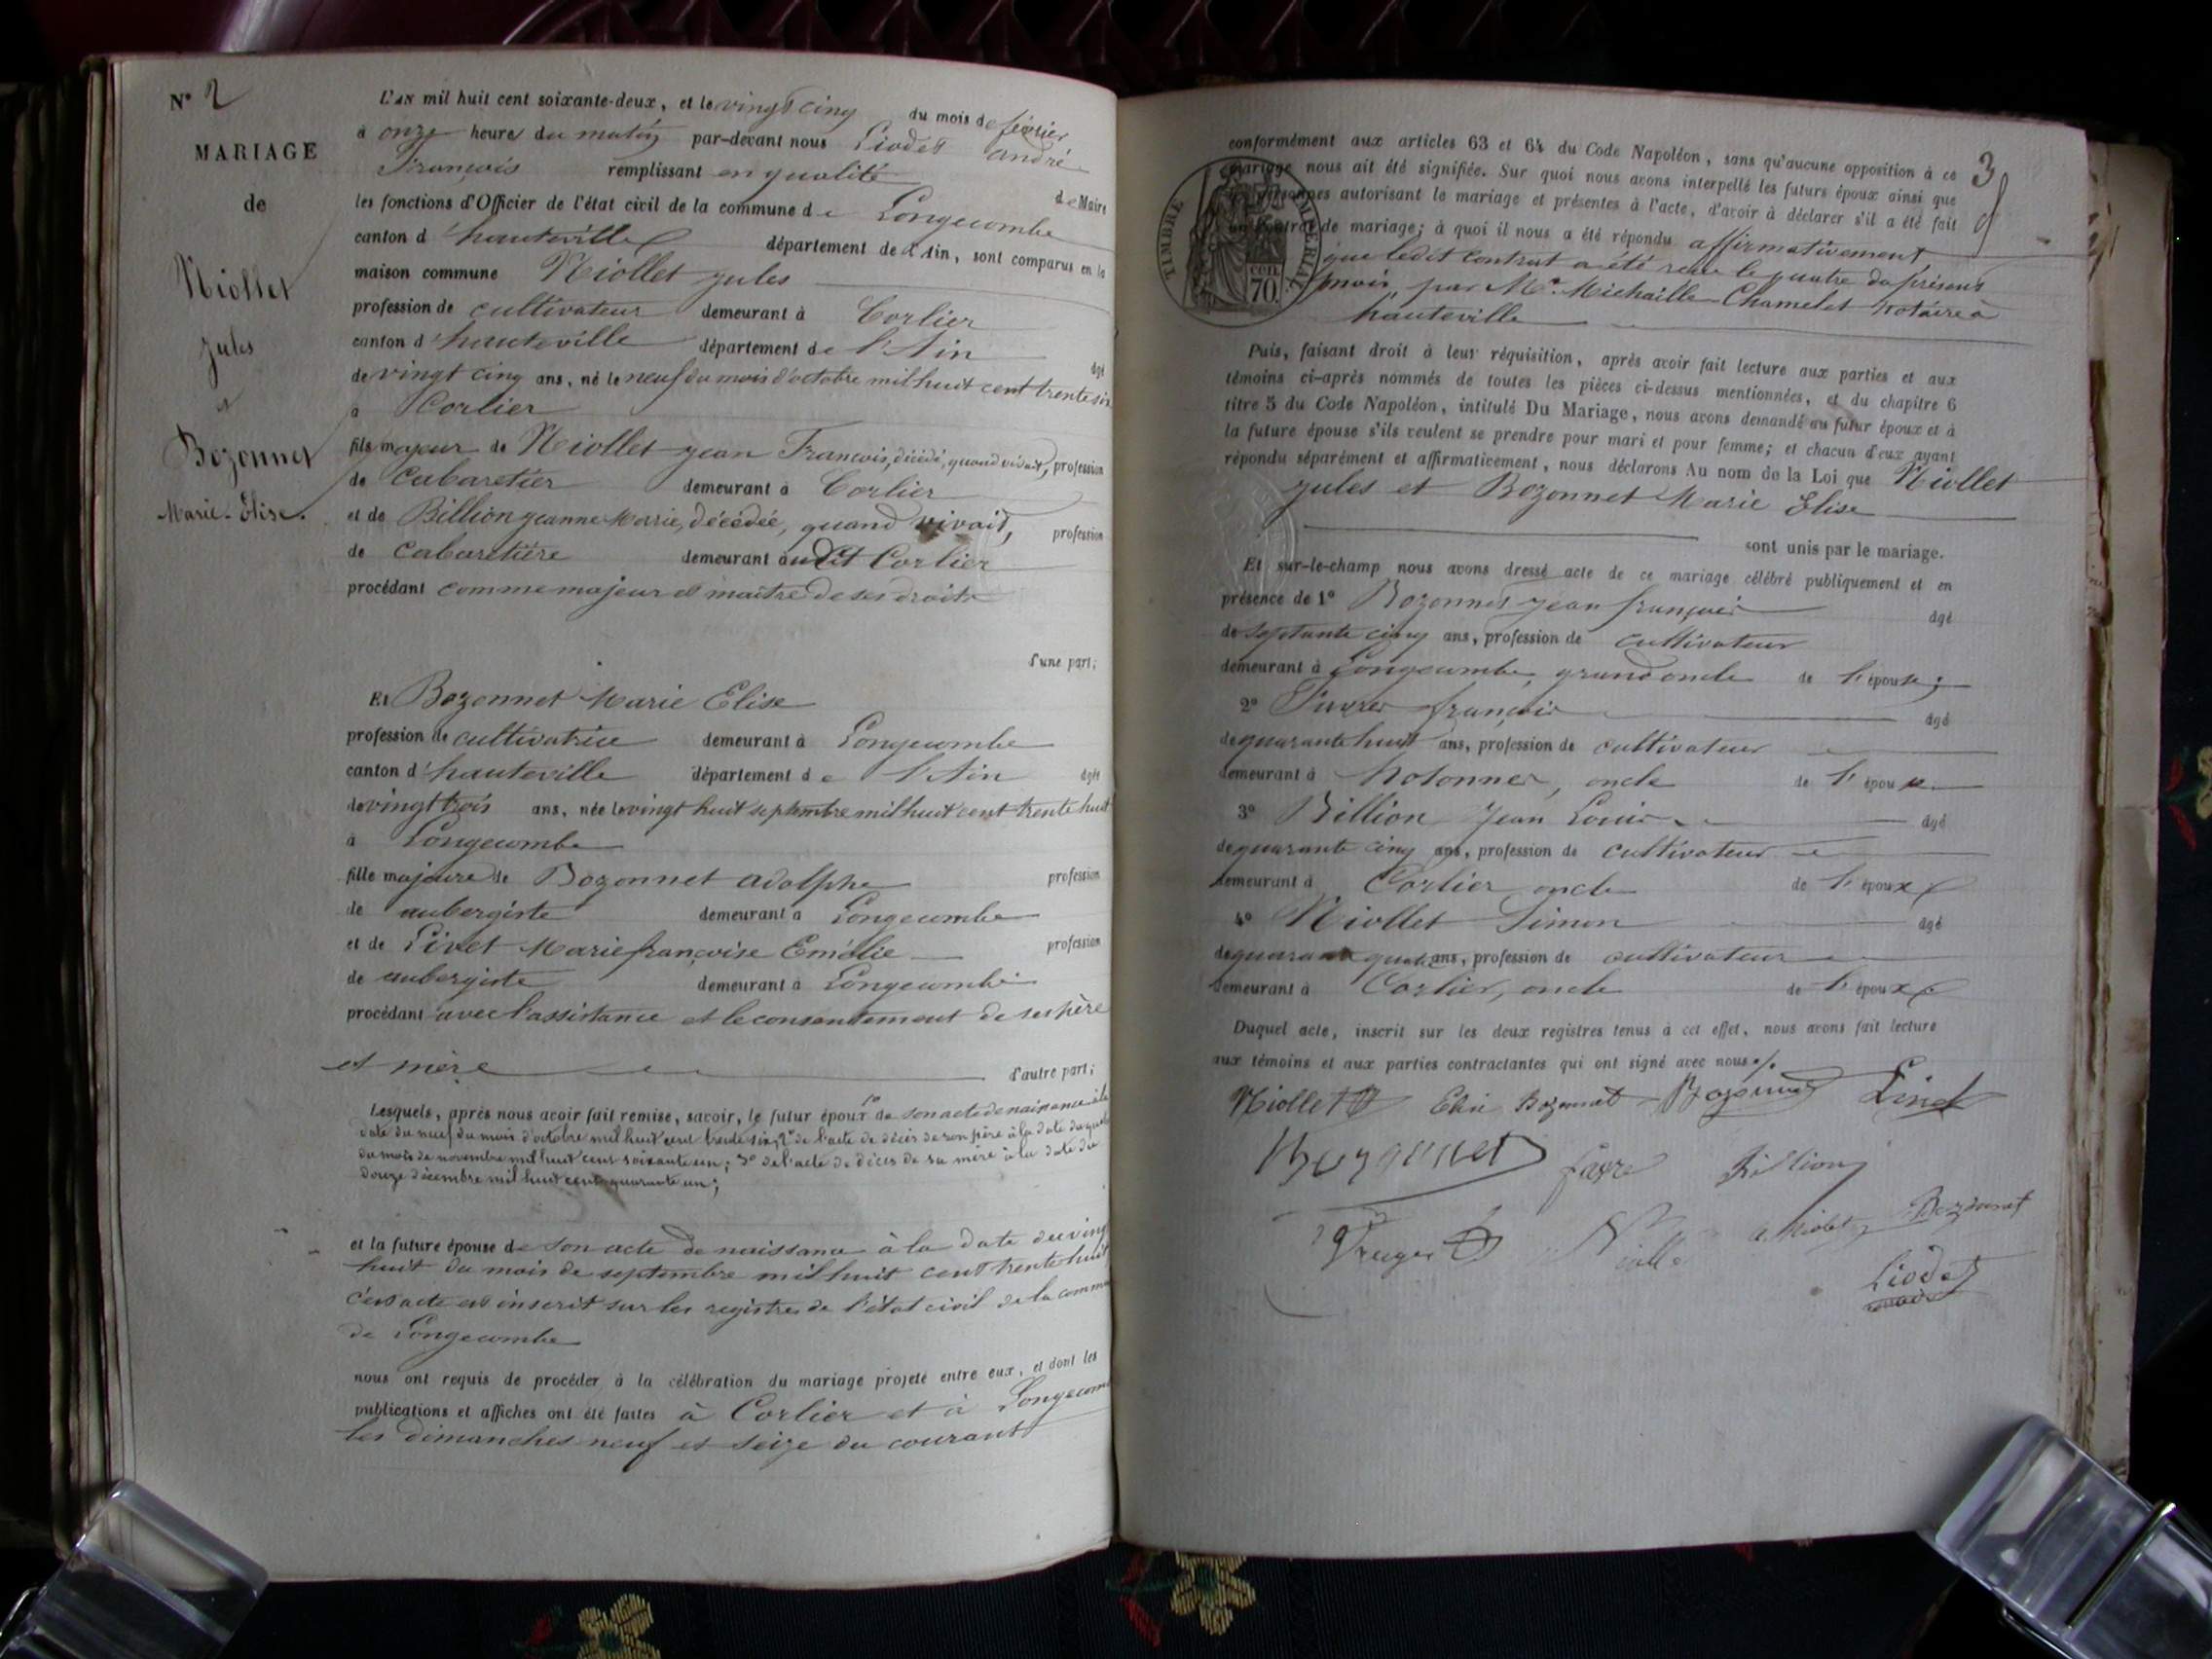 N° 2
MARIAGE
de
Niollet
Jules
et
Bozonnet
Marie-Elise.
L'AN mil huit cent soixante-deux, et le vingt cinq du mois de février
à onze heure du matin par-devant nous Liodet andré
François remplissant en qualité de Maire
les fonctions d'Officier de l'état civil de la commune de Longecombe
canton d'hauteville département de l'Ain, sont comparus en la
maison commune Niollet Jules
profession de cultivateur demeurant à Corlier
canton d'hauteville département de l'Ain âgé
de vingt cinq ans, né le neuf du mois d'octobre mil huit cent trente six
à Corlier
fils majeur de Niollet Jean François, décédé, quand vivait, profession
de Cabaretier demeurant à Corlier
et de Billion Jeanne Marie, décédée, quand vivait, profession
de Cabaretière demeurant audit Corlier
procédant comme majeur et maître de ses droits
d'une part;
Et Bozonnet Marie Elise
profession de cultivatrice demeurant à Longecombe
canton d'hauteville département de l'Ain âgée
de vingt trois ans, née le vingt huit septembre mil huit cent trente huit
à Longecombe
fille majeure de Bozonnet adolphe profession
de aubergiste demeurant à Longecombe
et de Livet Marie françoise Emélie profession
de aubergiste demeurant à Longecombe
procédant avec l'assistance et le consentement de ses père
et mère d'autre part;
Lesquels, après nous avoir fait remise, savoir, le futur époux 1° de son acte de naissance à la
date du neuf du mois d'octobre mil huit cent trente six, 2° de l'acte de décès de son père à la date du
du mois de novembre mil huit cent soixante un; 3° de l'acte de décès de sa mère à la date du
douze décembre mil huit cent quarante un;
et la future épouse de son acte de naissance à la date du vingt
huit du mois de septembre mil huit cent trente huit
c'est acte est inscrit sur les registres de l'état civil de la commune
de Longecombe
nous ont requis de procéder à la célébration du mariage projeté entre eux, et dont les
publications et affiches ont été faites à Corlier et à Longecombe
les dimanches neuf et seize du courant
3
TIMBRE IMPÉRIAL
70 cen.
conformément aux articles 63 et 64 du Code Napoléon, sans qu'aucune opposition à ce
mariage nous ait été signifiée. Sur quoi nous avons interpellé les futurs époux ainsi que
les personnes autorisant le mariage et présentes à l'acte, d'avoir à déclarer s'il a été fait
un contrat de mariage; à quoi il nous a été répondu affirmativement
que ledit Contrat a été reçu le quatre du présent
mois, par Me. Michaille Chamelet Notaire à
hauteville
Puis, faisant droit à leur réquisition, après avoir fait lecture aux parties et aux
témoins ci-après nommés de toutes les pièces ci-dessus mentionnées, et du chapitre 6
titre 5 du Code Napoléon, intitulé Du Mariage, nous avons demandé au futur époux et à
la future épouse s'ils veulent se prendre pour mari et pour femme; et chacun d'eux ayant
répondu séparément et affirmativement, nous déclarons Au nom de la Loi que Niollet
Jules et Bozonnet Marie Elise
sont unis par le mariage.
Et sur-le-champ nous avons dressé acte de ce mariage célébré publiquement et en
présence de 1° Bozonnet Jean françois âgé
de septante cinq ans, profession de cultivateur
demeurant à Longecombe, grand oncle de l'épouse;
2° françois âgé
de quarante huit ans, profession de cultivateur
demeurant à hotonnes, oncle de l'épouse.
3° Billion Jean Louis âgé
de quarante cinq ans, profession de cultivateur
demeurant à Corlier oncle de l'époux
4° Niollet Simon âgé
de quarante quatre ans, profession de cultivateur
demeurant à Corlier, oncle de l'époux
Duquel acte, inscrit sur les deux registres tenus à cet effet, nous avons fait lecture
aux témoins et aux parties contractantes qui ont signé avec nous
Niollet Elise Bozonnet Bozonnet Livet
Bozonnet favre Billion
Niolet Bozonnet
Liodet
maire